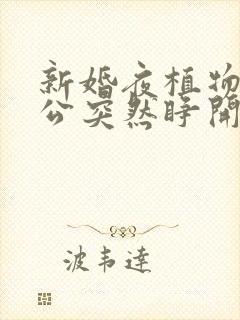 新婚夜植物
公突然睁开
波韦达